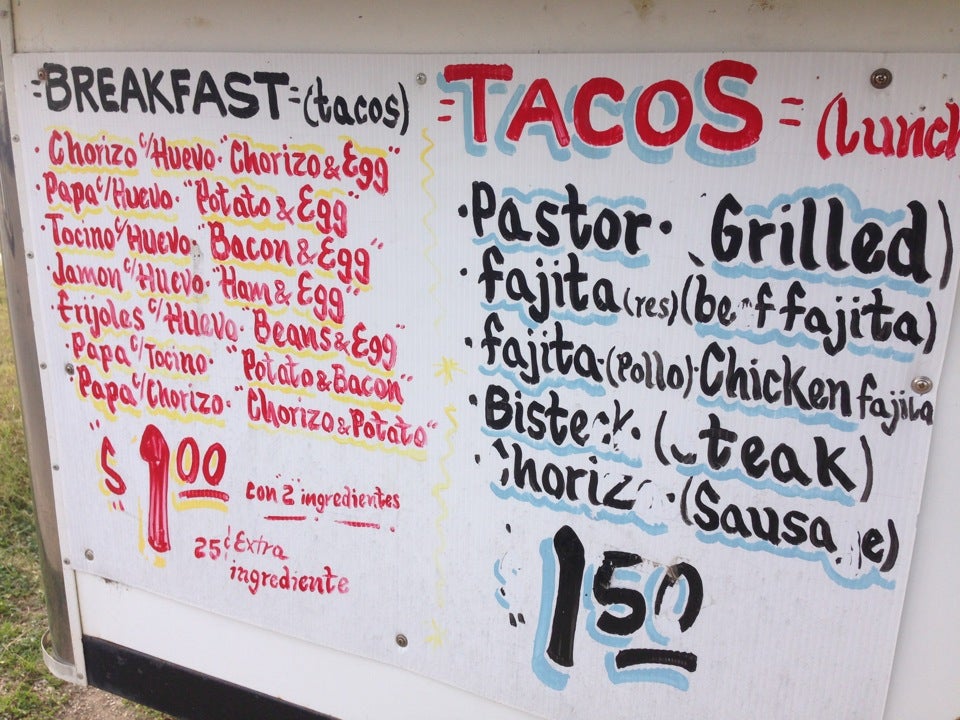 =BREAKFAST=(tacos)
· Chorizo c/Huevo· "Chorizo & Egg"
· Papa c/Huevo· "Potato & Egg"
· Tocino c/Huevo· "Bacon & Egg"
· Jamon c/Huevo· "Ham & Egg"
· Frijoles c/Huevo· "Beans & Egg"
· Papa c/Tocino· "Potato & Bacon"
· Papa c/Chorizo· "Chorizo & Potato"
$1.00
con "2" ingredientes
25¢ Extra
ingrediente
=TACOS= (Lunch
· Pastor· Grilled)
· fajita (res) (beef fajita)
· fajita·(Pollo)·Chicken fajita
· Bisteck· (Steak)
· Chorizo·(Sausage)
1.50